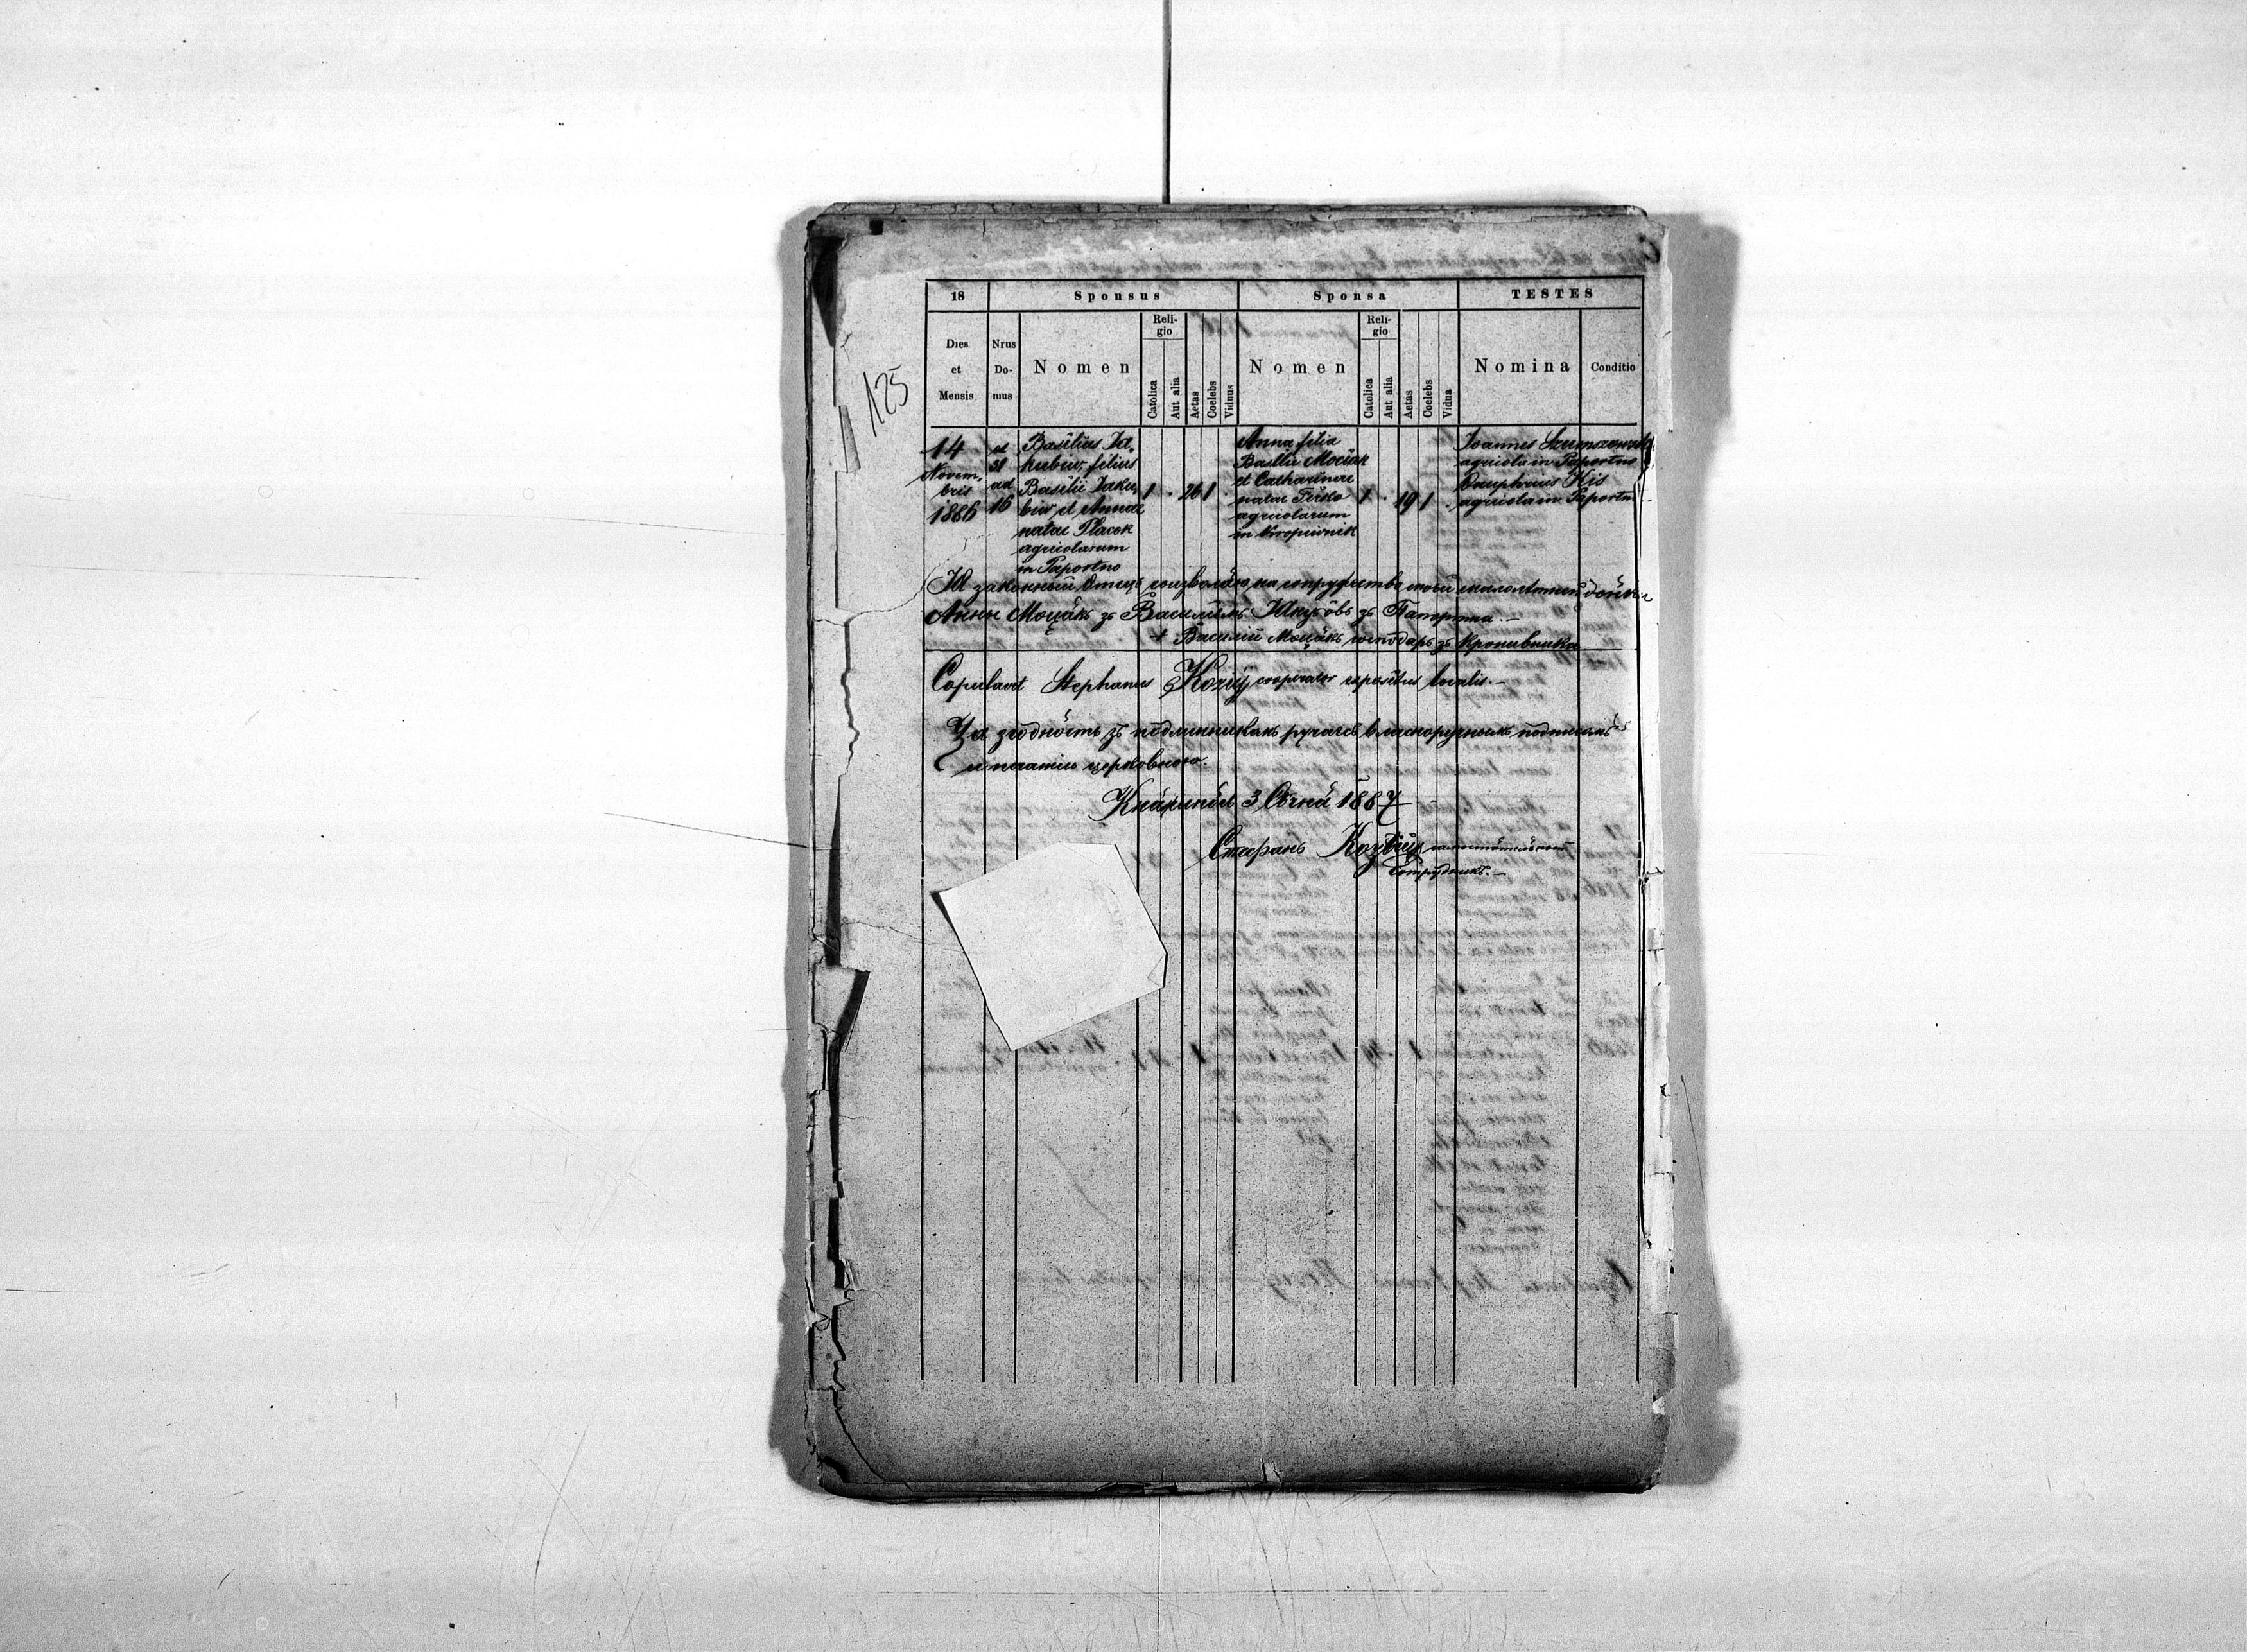 125
18 Sponsus Sponsa TESTES
Dies et Mensis Nrus Domus Nomen Religio Catolica Aut alia Aetas Coelebs Viduus Nomen Religio Catolica Aut alia Aetas Coelebs Vidua Nomina Conditio
14
Novem,
bris
1886
et
31
ad
16
Basilius Ja,
kubiw, filius
Basilii Jaku,
biw et Annae
natae Placek
agricolarum
in Paportno
1 . 26 1 .
Anna filia
Basilii Mociak
et Catharinae
natae
agricolarum
in Kropiwnik
1 . 19 1 .
Joannes
agricola in Paportno
Onuphrius Kis
agricola in Paportno
Я законный Отець соизволяю на супружество моей малолѣтной дочки
Анны Моцякъ зъ Василіемъ Якубôвъ зъ
+ Василій Моцякъ господарь зъ Кропивника
Copulavit Stephanus Kozij cooperator expositus localis.—
За згôдность зъ подлинникомъ ручаєсь власноручнымъ подписомъ
и печатію церковною.
3 Сѣчня 1887
Стефанъ
сотрудникъ.—